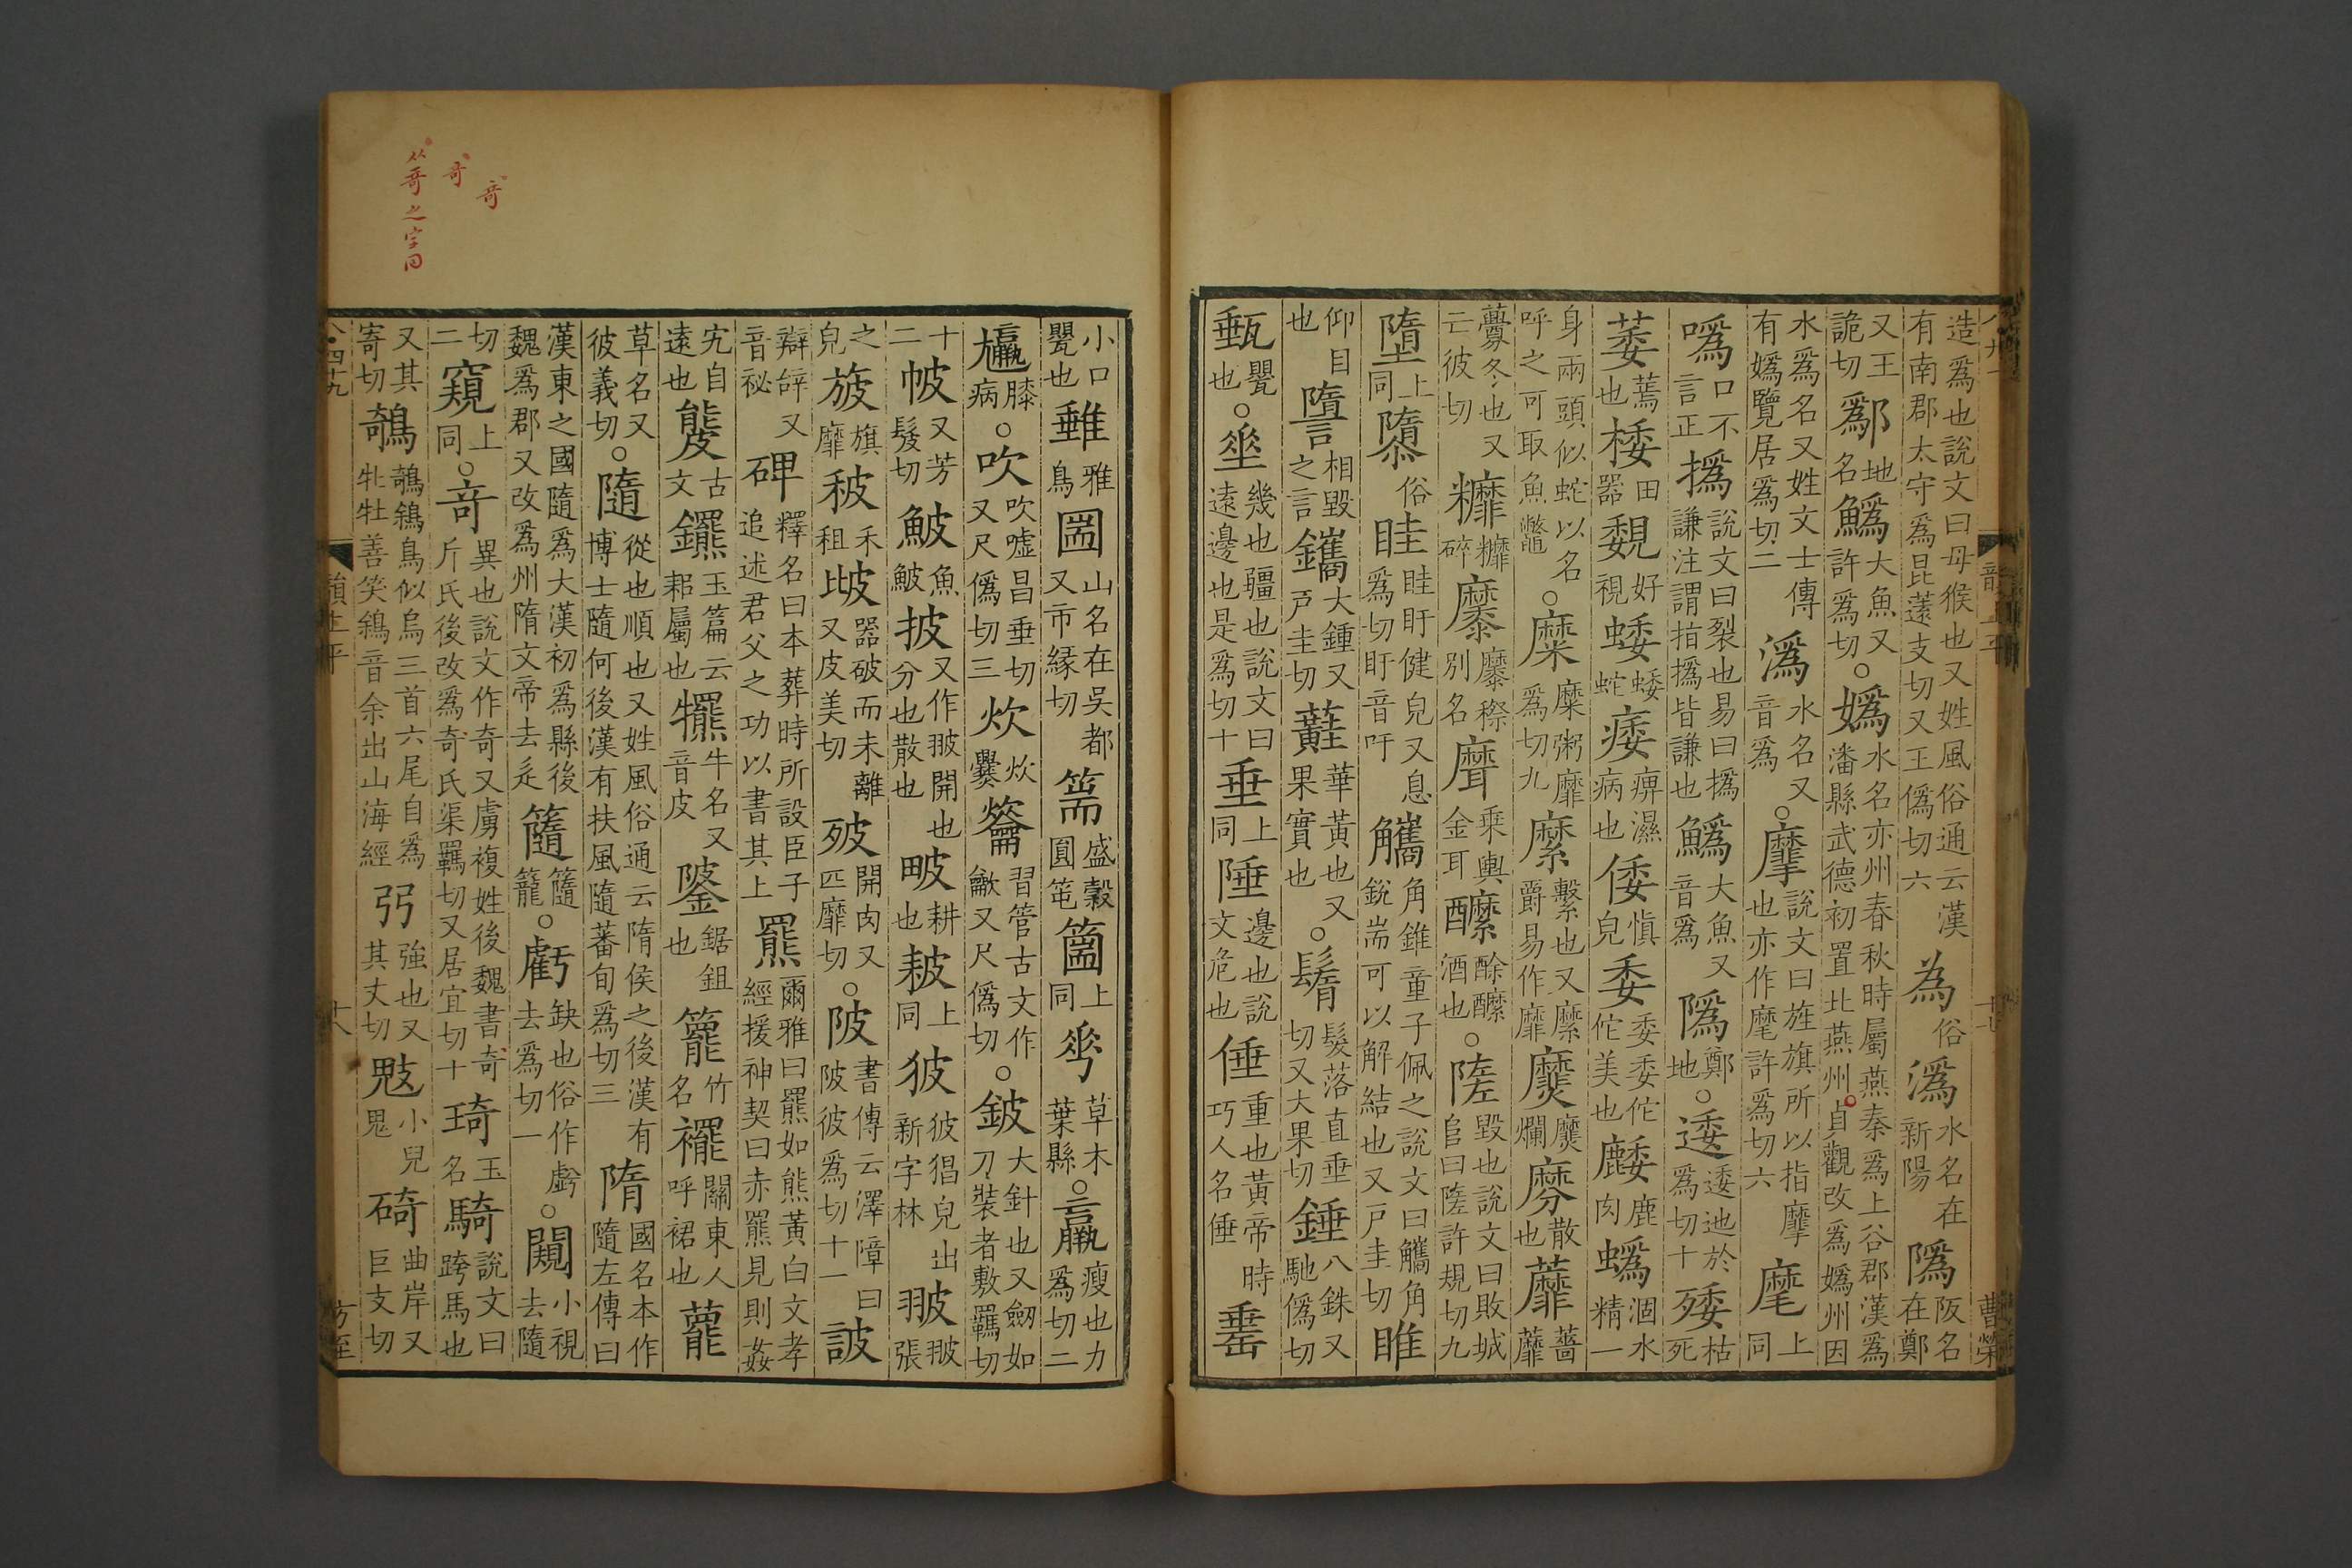 造爲也說文曰母猴也又姓風俗通云漢有南郡太守爲昆薳支切又王僞切六 為俗 潙水名在新陽 隝阪名在鄭
又王詭切 鄬地名 鰞大魚又許爲切○嬀水名亦州春秋時屬燕秦爲上谷郡漢爲潘縣武德初置北燕州貞觀改爲嬀州因
水爲名又姓文士傳有嬀覽居爲切二 潙水名又音爲○摩說文曰旌旗所以指摩也亦作麾許爲切六 麾上同
噅口不言正 撝說文曰裂也易曰撝謙注謂指撝皆謙也 鰞大魚又音爲 隝鄭地○逶逶迆於爲切十 㱧枯死
萎蔫也 㭃田器 覣好視 蜲蜲蛇 痿痹濕病也 倭愼皃 委委委佗佗美也 䴧鹿肉 蟡涸水精一
身兩頭似蛇以名呼之可取魚鼈○糜糜粥靡爲切九 縻繫也又縻爵易作靡 爢爢爛 散也 蘼蘠蘼
虋冬也又亡彼切 碎 穄別名 乗輿金耳 醿酴醿酒也○隓毀也說文曰敗城𨸏曰隓許規切九
墮上同 隳俗 眭眭盱健皃又息爲切盱音吁 觿角錐童子佩之說文曰觿角銳耑可以解結也又戶圭切 睢
仰目也 相毀之言 鑴大鍾又戶圭切 蘳華黃也又果實也○鬌髮落直垂切又大果切 錘八銖又馳僞切
甀甖也○𡍮幾也疆也說文曰遠邊也是爲切十 垂上同 陲邊也說文危也 倕重也黃帝時巧人名倕 䍋
曹榮
小口甖也 雅鳥 圌山名在吳都又市緣切 篅盛穀圓笔 圖上同 草木葉縣○羸瘦也力爲切二
膝病○吹吹噓昌垂切又尺僞切三 炊炊爨 龡習管古文作龡又尺僞切○鈹大針也又劒如刀裝者敷羈切
十二 帔又芳髲切 鮍魚鮍 披又作翍開也分也散也 畈耕也 耚上同 狓彼猖皃出新字林 翍翍張
之皃 旇旗靡 秛禾租 㱟器破而未離又皮美切 㱟開肉又匹靡切○陂書傳云澤障曰陂彼爲切十一 詖
辯辝又音祕 碑釋名曰本葬時所設臣子追述君父之功以書其上 羆爾雅曰羆如熊黃白文孝經援神契曰赤羆見則姦
宄自遠也 古文 鑼玉篇云耜屬也 犤牛名又音皮 鋸鉏也 籠竹名 襬關東人呼裙也 蘢
草名又彼義切○隨從也順也又姓風俗通云隋侯之後漢有博士隨何後漢有扶風隨蕃旬爲切三 隋國名本作隨左傳曰
漢東之國隨爲大漢初爲縣後魏爲郡又改爲州隋文帝去辵 籠○虧缺也俗作虧去爲切一○闚小視去隨
切二 窺上同○奇異也說文作奇又虜複姓後魏書奇斤氏後改爲奇氏渠羈切又居宜切十 琦玉名 騎說文曰跨馬也
又其寄切 鵸鵸鵌鳥似烏三首六尾自爲牝牡善笑鵌音余出山海經 弜強也又其丈切 鬾小兒鬼 碕曲岸又巨支切
十八
方至
奇
奇
从奇之字同